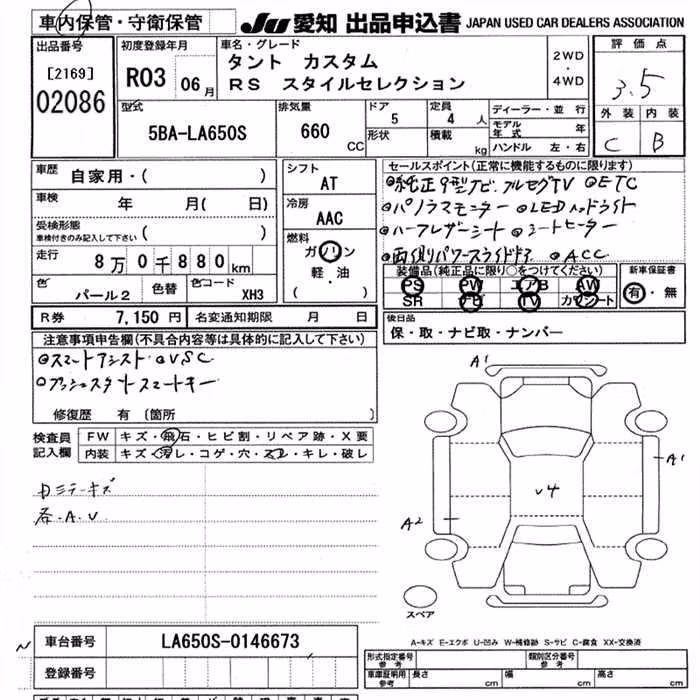 車内保管・守衛保管
JU 愛知 出品申込書 JAPAN USED CAR DEALERS ASSOCIATION
出品番号
[2169]
02086
初度登録年月
R03 06月
車名・グレード
タント カスタム
RS スタイルセレクション
2WD
・
4WD
評価点
3.5
外装 内装
C B
型式
5BA-LA650S
排気量
660
CC
ドア
5
定員
4 人
形状
積載
kg
ディーラー・並行
モデル年式 年
ハンドル 左・右
車歴
自家用・( )
車検
年 月( 日)
受検形態
車検付きのみ記入して下さい ( )
走行
8万0千880km
色
パール2
色替
色コード
XH3
シフト
AT
冷房
AAC
燃料
ガソリン
軽・油
( )
セールスポイント(正常に機能するものに限ります)
◎純正9型ナビ フルセグTV ◎ETC
◎パノラマモニター ◎LEDヘッドライト
◎ハーフレザーシート ◎シートヒーター
◎両側パワースライドドア ◎ACC
装備品(純正品に限り○をつけてください)
PS PW エアB AW
SR ナビ TV カワシート
新車保証書
有・無
R券 7,150 円 名変通知期限 月 日
後日品
保・取・ナビ取・ナンバー
注意事項申告欄(不具合内容等は具体的に記入して下さい)
◎スマートアシスト ◎VSC
◎プッシュスタートスマートキー
修復歴 有 〔箇所 〕
検査員
記入欄
FW キズ・飛石・ヒビ割・リペア跡・X要
内装 キズ・汚レ・コゲ・穴・スレ・キレ・破レ
内ステーキズ
各.A.U
A1
A1
A2
U4
スペア
A-キズ E-エクボ U-凹み W-補修跡 S-サビ C-腐食 XX-交換済
車台番号
LA650S-0146673
登録番号
形式指定番号
参考
類別区分番号
参考
車庫証明用
参考
長さ cm 幅 cm 高さ cm